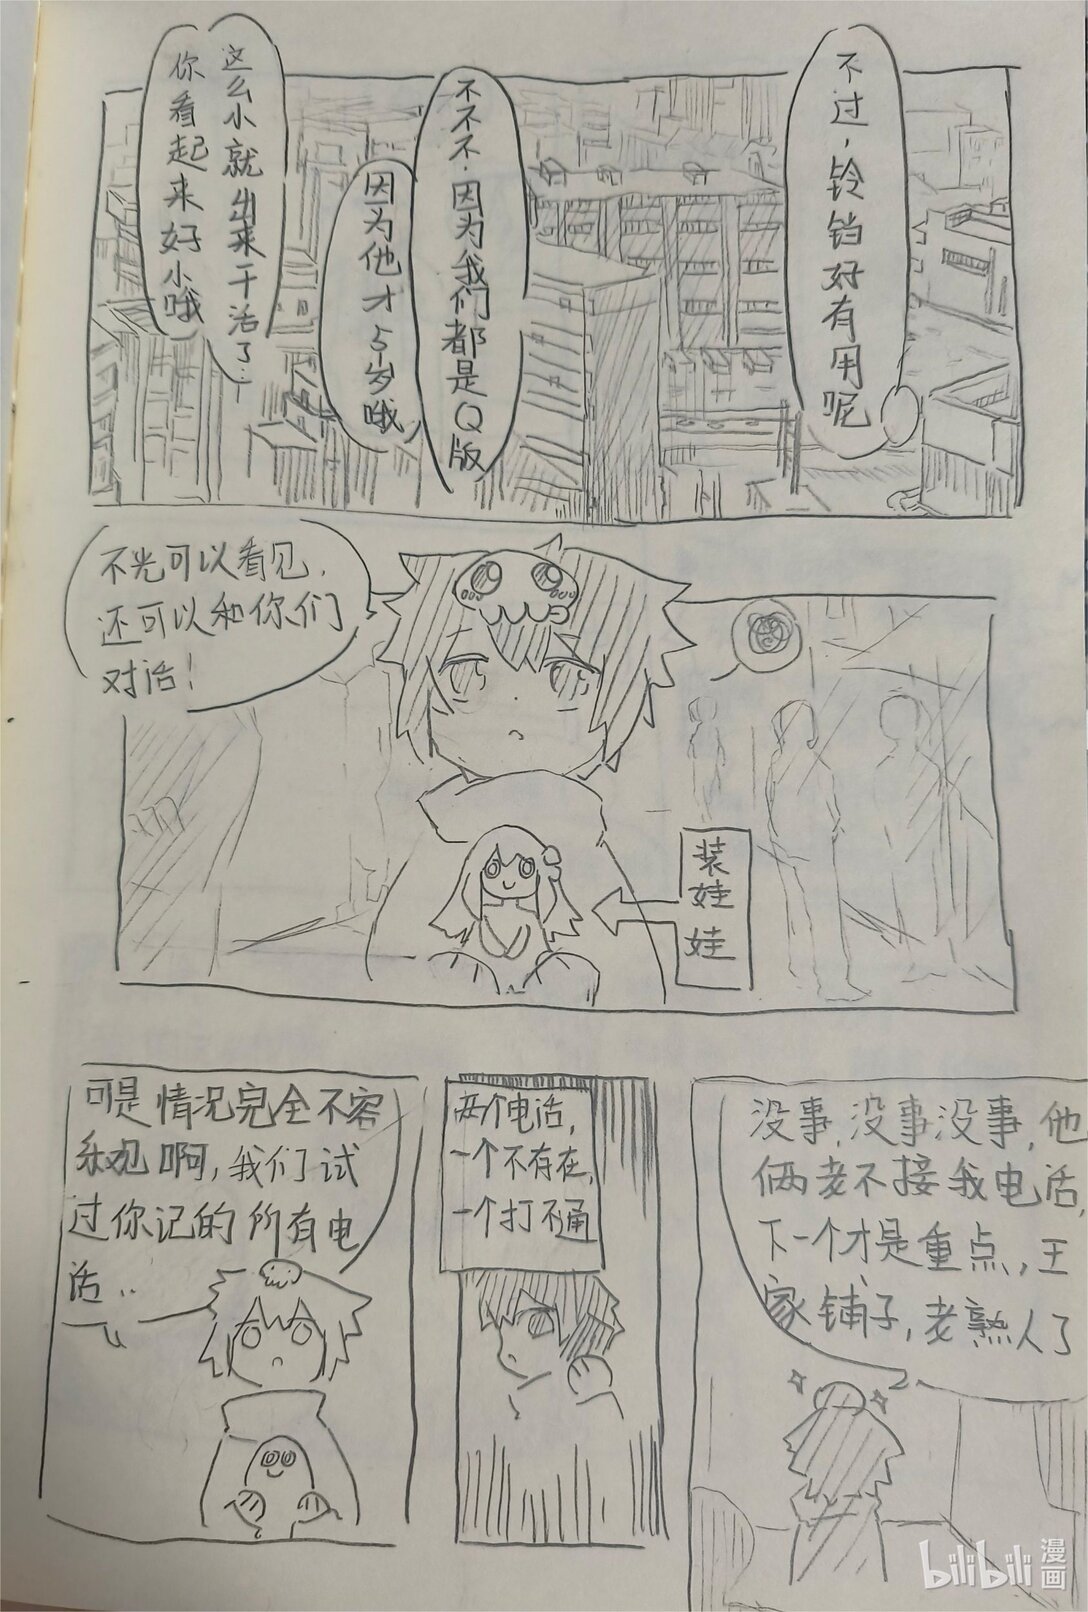 不过，铃铛好有用呢
不不不，因为我们都是Q版
因为他才5岁哦
这么小就出来干活了…
你看起来好小哦
不光可以看见，
还可以和你们
对话！
装娃娃
可是情况完全不容
乐观啊，我们试
过你记的所有电
话..
两个电话，
一个不存在，
一个打不通
没事，没事没事，他
俩老不接我电话，
下一个才是重点，王
家铺子，老熟人了
bilibili
漫画